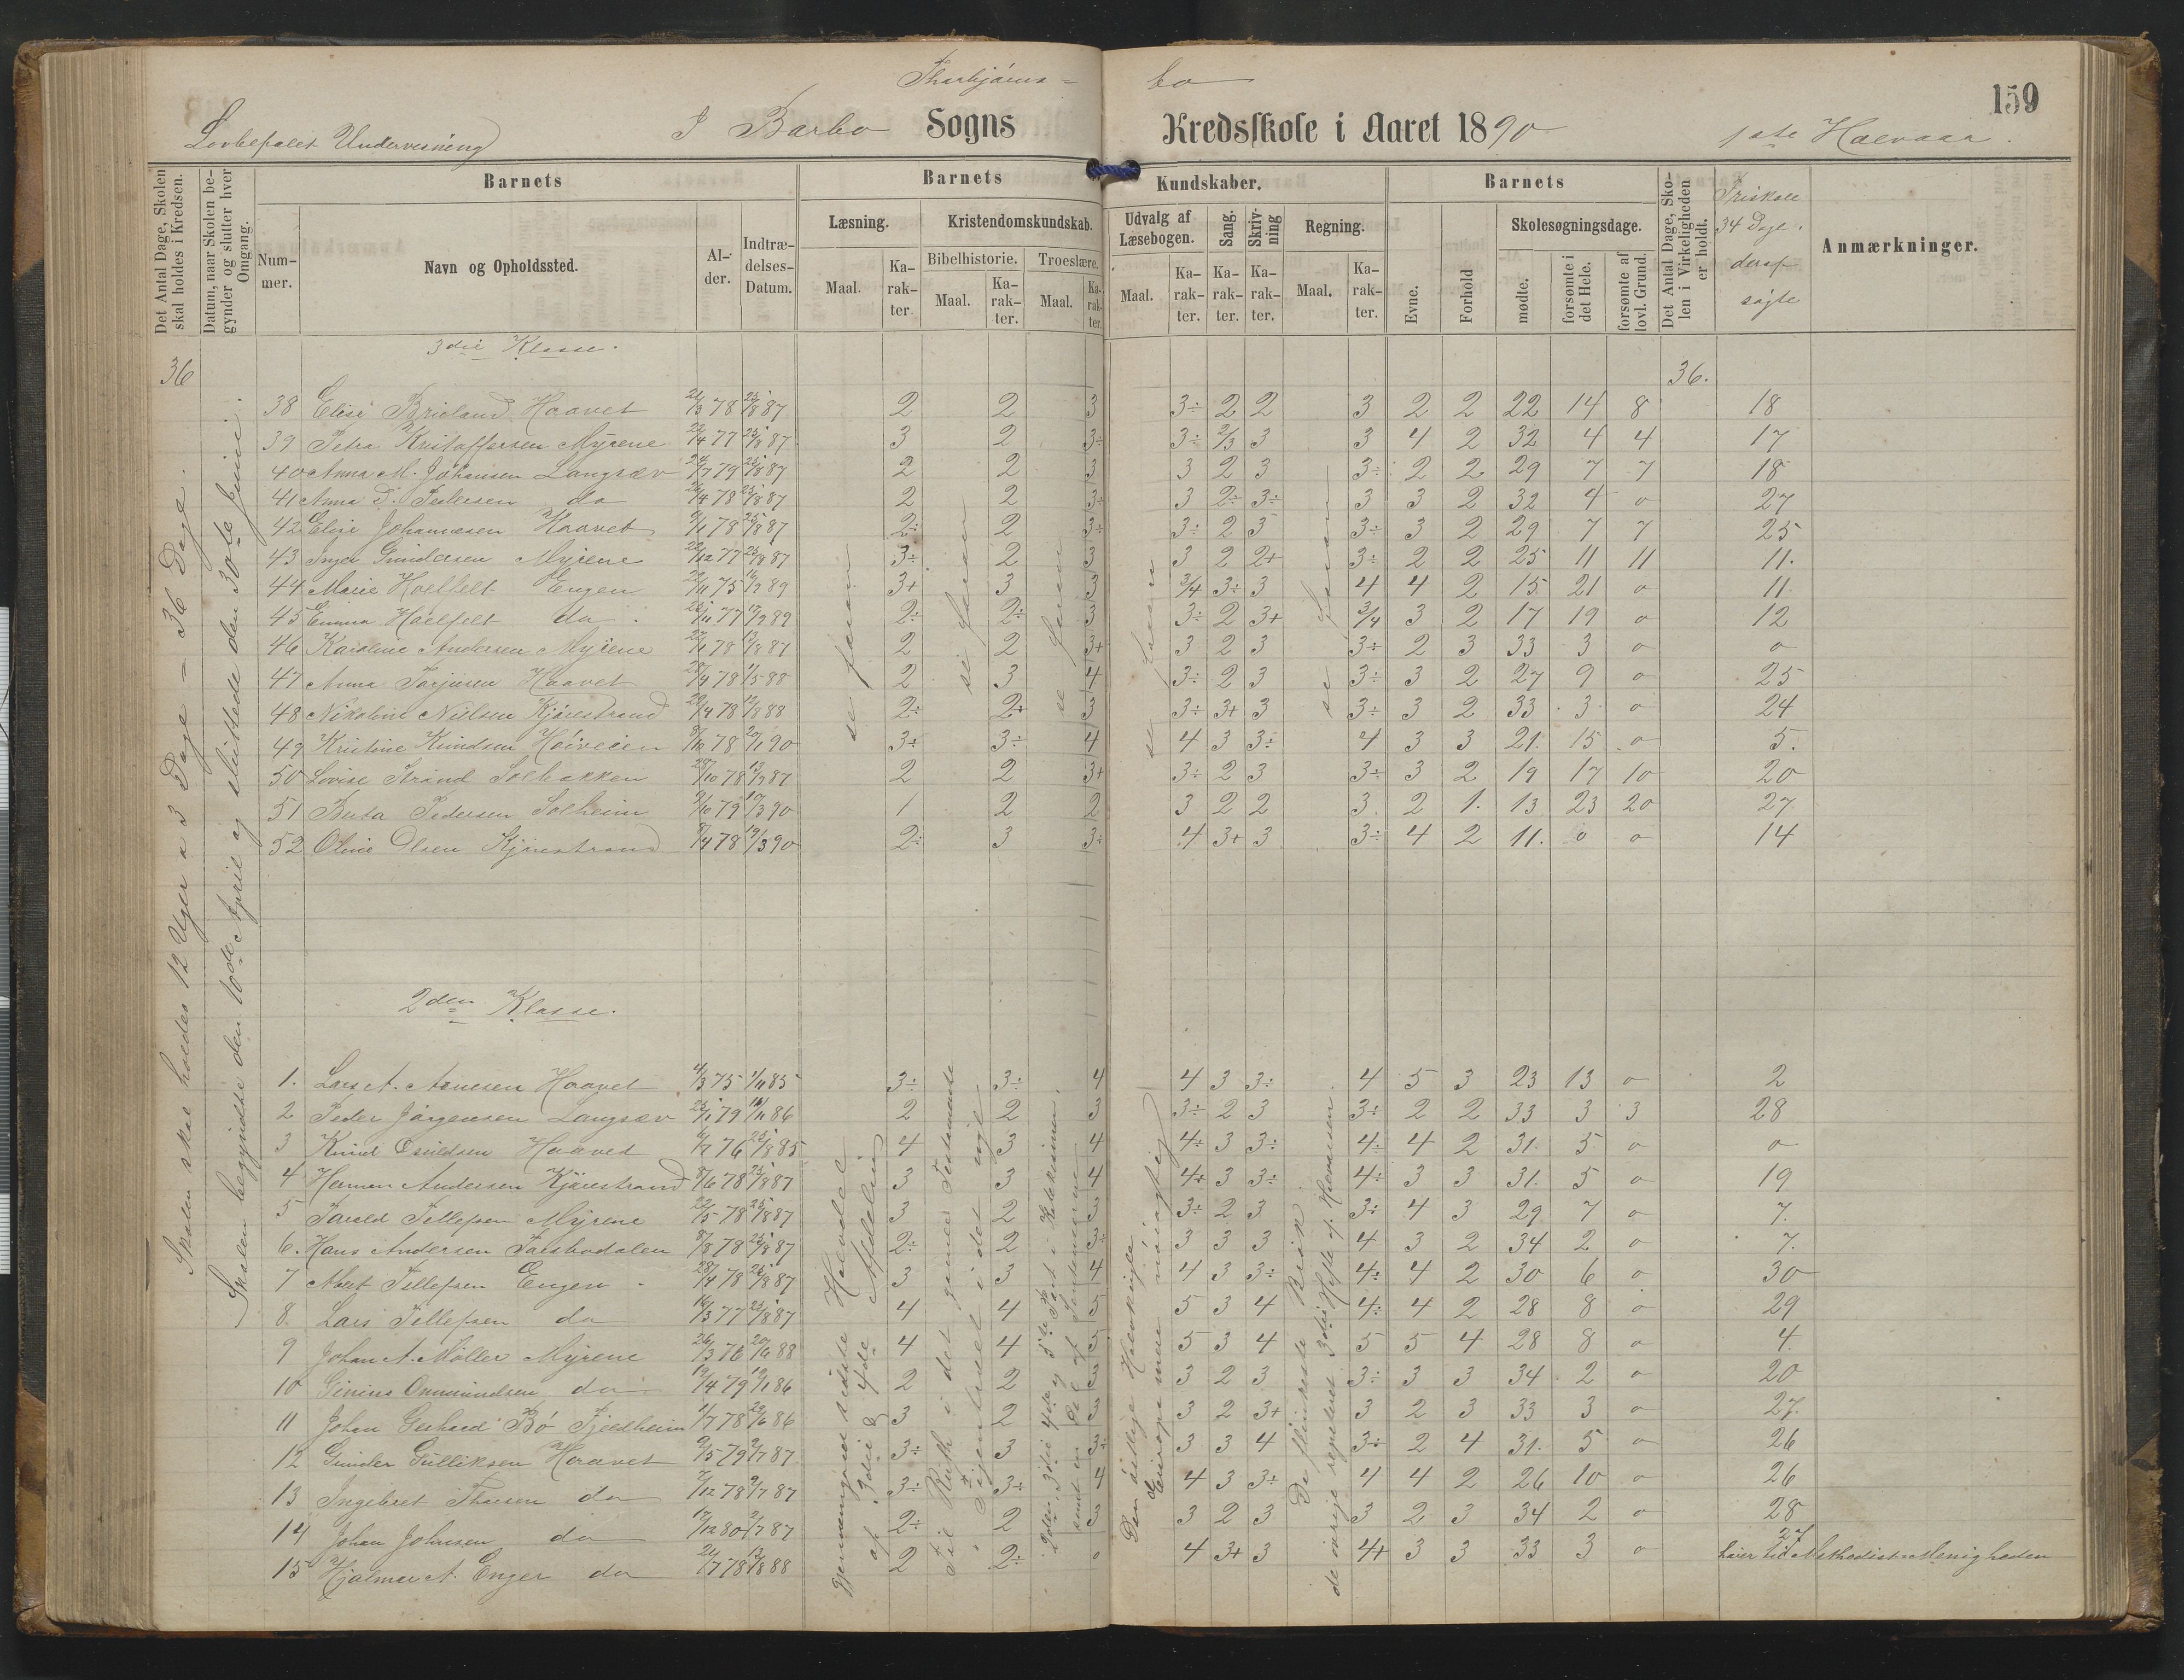 159
Thorbjörns= bo
Lovbefalet Undervisning
I Barbo Sogns Kredsskole i Aaret 1890
1ste Halvaar.
Det Antal Dage, Skolen skal holdes i Kredsen.
Datum, naar Skolen begynder og slutter hver Omgang.
Barnets
Nummer.
Navn og Opholdssted.
Alder.
Indtrædelses-Datum.
Barnets Kundskaber.
Læsning.
Maal.
Karakter.
Kristendomskundskab.
Bibelhistorie.
Maal.
Karakter.
Troeslære.
Maal.
Karakter.
Udvalg af Læsebogen.
Maal.
Karakter.
Sang.
Karakter.
Skrivning
Karakter.
Regning.
Maal.
Karakter.
Barnets
Evne.
Forhold
Skolesøgningsdage.
mødte.
forsømte i det Hele.
forsømte af lovl. Grund.
Det Antal Dage, Skolen i Virkeligheden er holdt.
Friskole 34 Dage. deraf søgte
Anmærkninger.
Skolen skal holdes 12 Uger a 3 Dage = 36 Dage.
Skolen begyndte den 10de April og sluttede den 30te Juni.
3die Klasse.
36 36.
38 Elise Brieland Haavet 21/3 78 25/8 87 2 2 3 3÷ 2 2 3 2 2 22 14 8 18
39 Petra Kristoffersen Myrene 23/4 77 25/8 87 3 2 3÷ 3÷ 2/3 3 3 4 2 32 4 4 17
40 Anna M. Johansen Langsæv 24/7 79 25/8 87 2 2 3 3 2 3 3÷ 2 2 29 7 7 18
41 Anna P. Pedersen do 26/4 78 25/8 87 2 2 3÷ 3 2÷ 3÷ 3 3 2 32 4 0 27
42 Elise Johannesen Haavet 9/11 78 25/8 87 2÷ 2 3÷ 3÷ 2 3 3÷ 3 2 29 7 7 25
43 Inga Gundersen Myrene 22/12 77 25/8 87 3÷ 2 3 3 2 2+ 3÷ 2 2 25 11 11 11.
44 Marie Holtfelt Engen 75 89 3+ 3 3 3/4 3÷ 3 4 4 2 15 21 0 11
45 Emma Holtfelt do 77 89 2÷ 2÷ 3 3÷ 2 3+ 3/4 3 2 17 19 0 12
46 Karoline Andersen Myrene 78 87 2 2 3+ 3 2 3 3÷ 2 3 33 3 0 0
47 Anna Torjusen Haavet 28/4 78 1/5 88 2 3 4 3÷ 2 3 3÷ 3 2 27 9 0 25
48 Nikoline Nielsen Kjørestrand 78 88 2÷ 2+ 3 3÷ 3+ 3 3÷ 3 2 33 3 0 24
49 Kristine Knudsen Høiveien 8/10 78 20/1 90 3÷ 3÷ 4 4 3 3÷ 4 3 3 21. 15 0 5.
50 Lovise Strand Solbakken 28/10 78 87 2 2 3+ 3÷ 2 3 3÷ 3 2 19 17 10 20
51 Berta Pedersen Solheim 9/10 79 90 1 2 2 3 2 2 3. 2 1. 13 23 20 27
52 Oline Olsen Kjørestrand 8/4 78 19/3 90 2÷ 3 3÷ 4 3+ 3 3÷ 4 2 11. 0 0 14
se foran
se foran
se foran
se foran
se foran
2den Klasse.
1. Lars A. Arnesen Haavet 4/3 75 1/11 85 3÷ 3÷ 4 4 3 3÷ 4 5 3 23 13 0 2
2 Peder Jørgensen Langsæv 25/1 79 86 2 2 3 3÷ 2 3 3÷ 2 2 33 3 3 28
3 Knud Osuldsen Haavet 76 85 4 3 4 4÷ 3 3÷ 4÷ 4 2 31. 5 0 0
4 Herman Andersen Kjørestrand 8/6 78 25/8 87 3 3 4 4+ 3 3÷ 4÷ 3 3 31. 5 0 19
5 Torald Tellefsen Myrene 22/5 78 25/8 87 3 2 3 3÷ 2 3 3÷ 4 3 29 7 0 7.
6. Hans Andersen Torsbodalen 8/8 78 25/8 87 2÷ 2 3÷ 3 3 3 4 3 2 34 2 0 7.
7 Albert Tellefsen Engen 28/4 78 25/8 87 3 3 4 4 3 3÷ 4÷ 4 2 30 6 0 30
8. Lars Tellefsen do 16/3 77 25/8 87 4 4 5 5 3 4 4÷ 4 2 28 8 0 29
9 Johan A. Møller Myrene 26/3 76 20/6 88 4 4 5 5 3 4 5 5 4 28 8 0 4.
10 Ginius Ommundsen do 19/4 79 86 2 2 3 3 2 3 3÷ 3 3 34 2 0 20
11 Johan Gerhard Bö Fjeldheim 1/7 78 86 3 2 3 3 2 3+ 3 2 3 33 3 0 27.
12 Gunder Gulliksen Haavet 9/5 79 9/7 87 3÷ 3 3÷ 3 3 4 3÷ 2 4 31. 5 0 26
13 Ingebret Thorsen do 7/12 78 9/7 87 3÷ 3÷ 4 4 3 3÷ 4 4 2 26 10 0 26
14 Johan Johnsen do 17/12 80 87 2÷ 2 3 3 2 3 3 2 3 34 2 0 28
15 Hjalmar A. Enger do 21/7 78 88 2 2÷ 0 4 3+ 3 4+ 3 3 33 3 0 27 hører til Methodist-Menigheden
Gjennemgaaet sidste Halvdel af 3die & 4de Afdeling
Til Ruth i det gamle Testamente. Tilsvarende i det nye
2den, 3die, 4de og 5te Part i Katekismen samt en Del af
Den østlige Halvkugle. Europa mere nøiagtig
De flinkeste Brøk. de øvrige repeteret 3die Hefte af